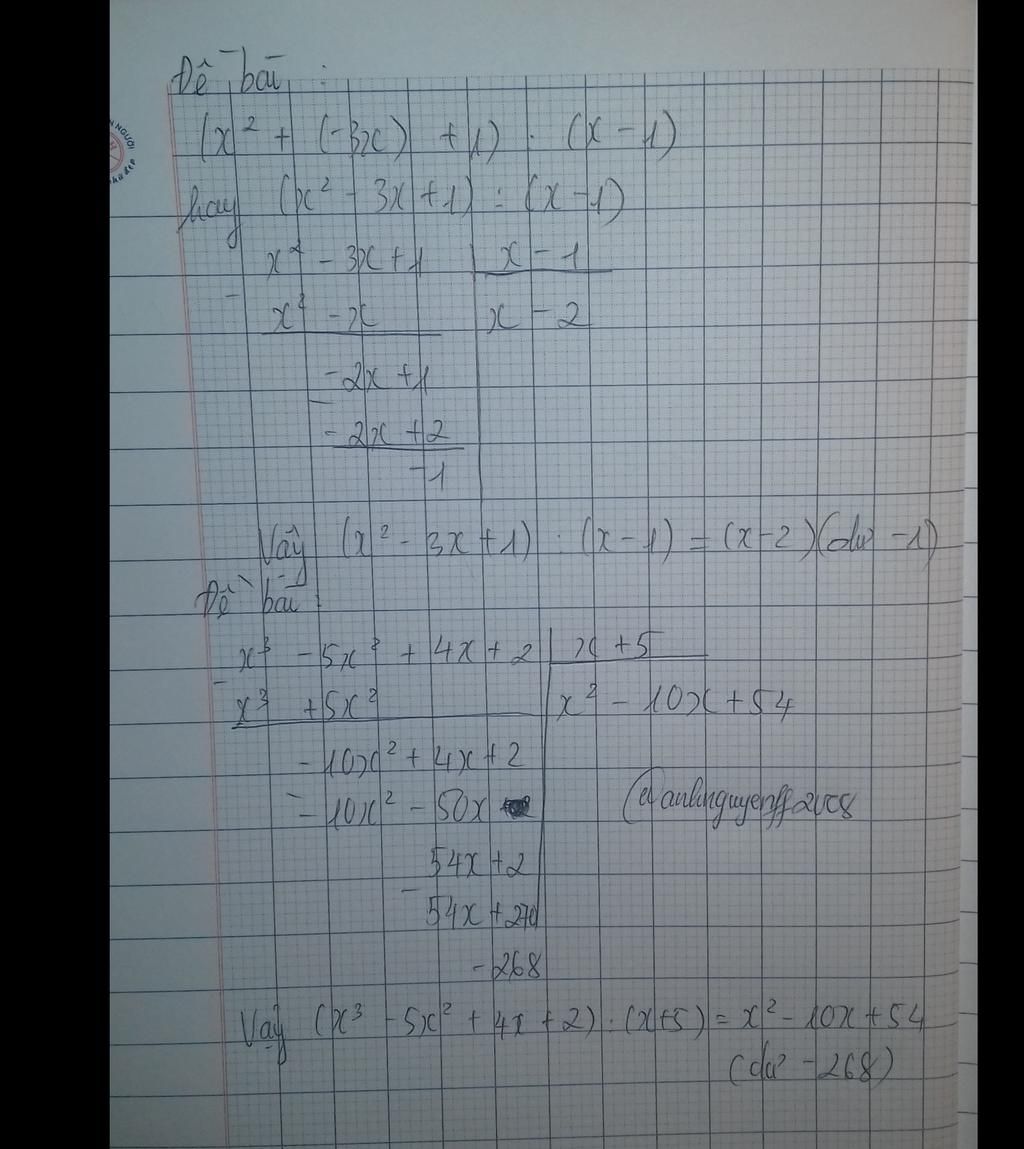 Đề bài :
(x² + (-3x) + 1) : (x - 1)
hay (x² - 3x + 1) : (x - 1)
x² - 3x + 1 | x - 1
- x² - x | x - 2
-2x + 1
- -2x + 2
-1
Vậy (x² - 3x + 1) : (x - 1) = (x - 2) (dư -1)
Đề bài :
x³ - 5x² + 4x + 2 | x + 5
- x³ + 5x² | x² - 10x + 54
-10x² + 4x + 2
- -10x² - 50x
54x + 2
- 54x + 270
-268
Vậy (x³ - 5x² + 4x + 2) : (x + 5) = x² - 10x + 54
(dư -268)